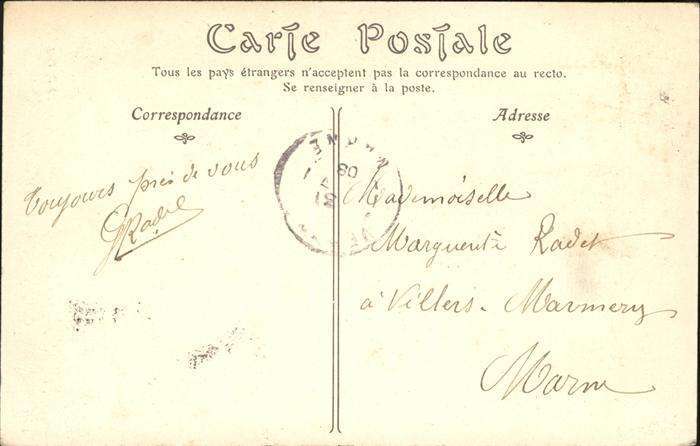 Carte Postale
Tous les pays étrangers n'acceptent pas la correspondance au recto.
Se renseigner à la poste.
Correspondance
Adresse
Toujours près de vous
GRadet
Mademoiselle
Marguerite Radet
à Villers-Marmery
Marne
MARNE
08